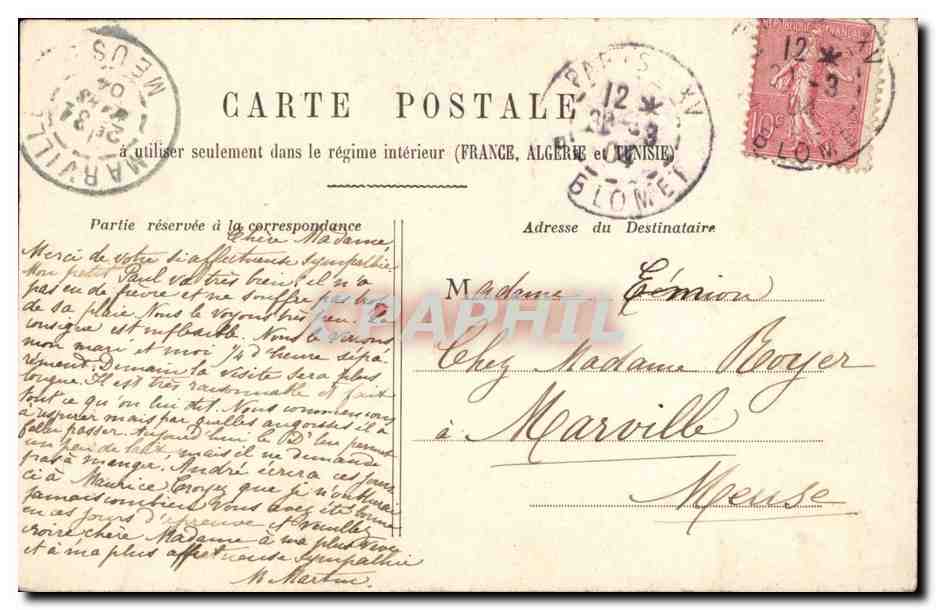 CARTE POSTALE
à utiliser seulement dans le régime intérieur (FRANCE, ALGÉRIE et TUNISIE)
MARVILLE
MEUSE
04
PARIS XV
12 *
BLOMET
RÉPUBLIQUE FRANÇAISE
10c
12 *
BLOMET
Partie réservée à la correspondance
Chère Madame,
Merci de votre si affectueuse sympathie
Mon petit Paul va très bien, il n'a
pas eu de fièvre et ne souffre pas trop
de sa plaie. Nous le voyons très peu. La
consigne est inflexible. Nous le verrons
mon mari et moi 1/4 d'heure sépa-
rément. Demain la visite sera plus
longue. Il est très raisonnable et fait
tout ce qu'on lui dit. Nous commençons
à respirer mais par quelles angoisses il a
fallu passer. Aujourd'hui le Dr lui permet
un peu de lait, mais il ne demande
pas à manger. André écrira ces jours
ci à Maurice. Croyez que je n'oublierai
jamais combien vous avez été bonne
en ces jours d'épreuve et veuillez
croire chère Madame à ma plus vive
et à ma plus affectueuse sympathie
M. Martin.
Adresse du Destinataire
Madame Témion
Chez Madame Royer
à Marville
Meuse
CPAPHIL